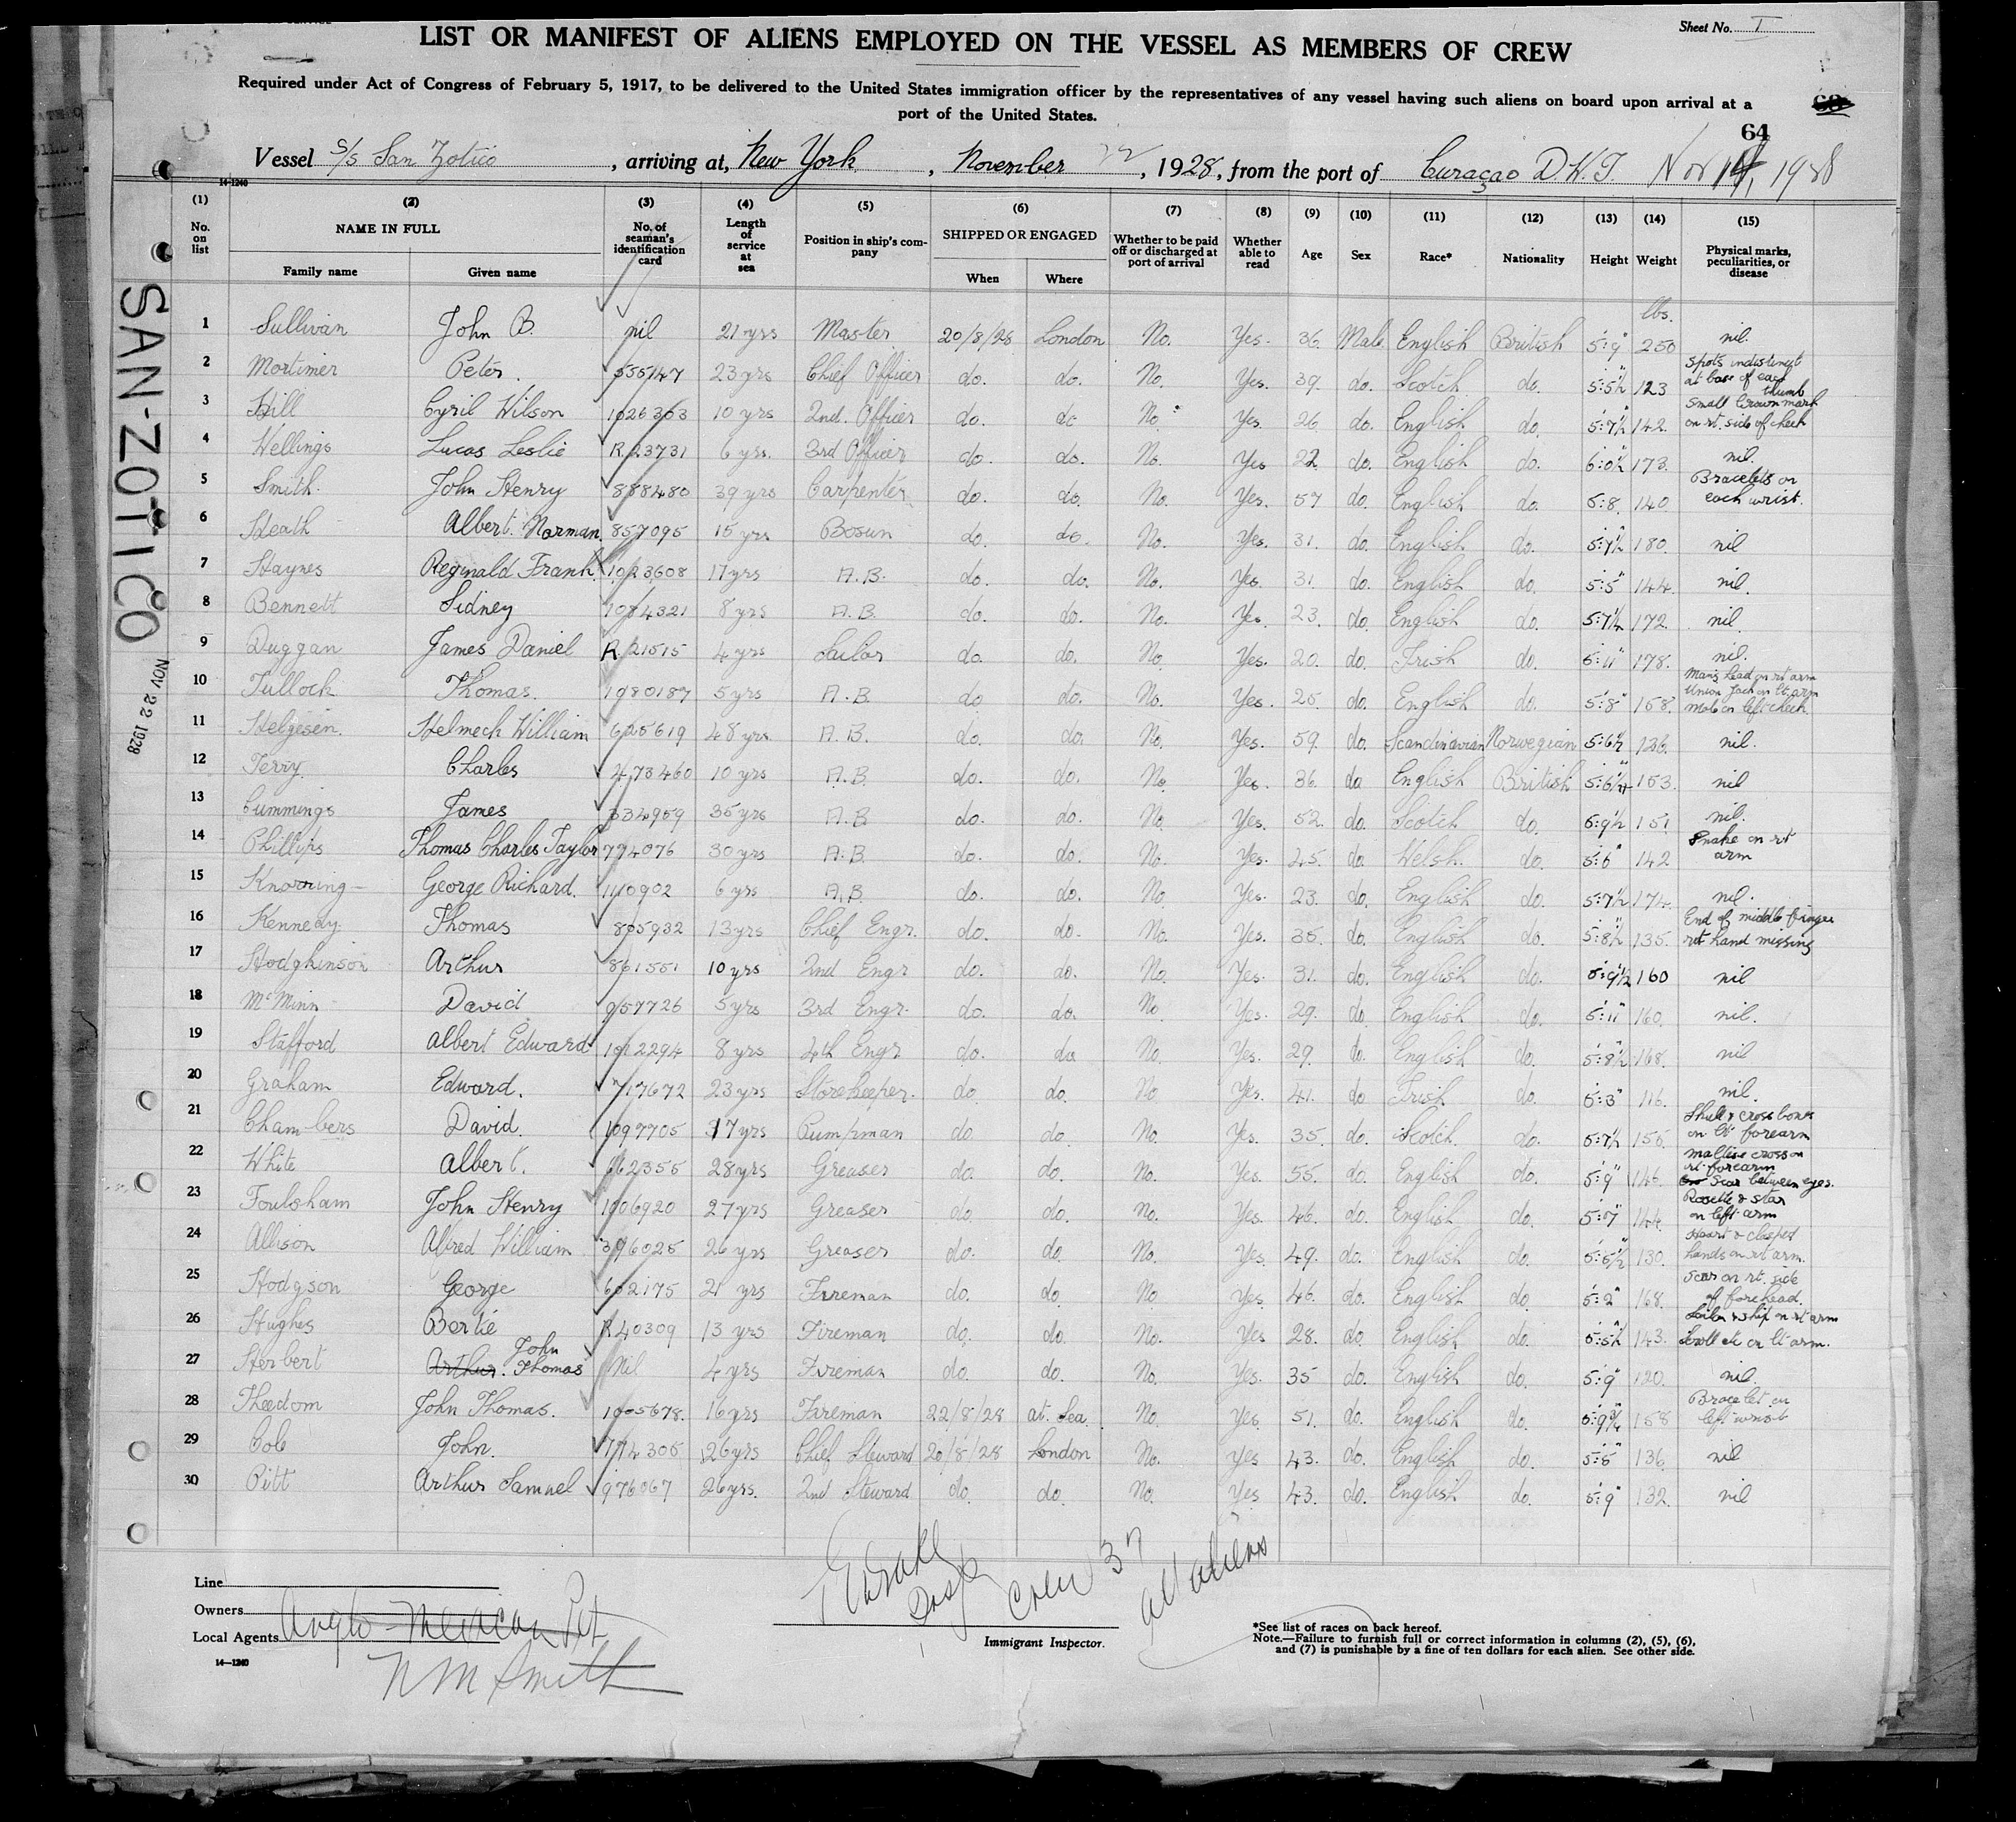 Sheet No. I
LIST OR MANIFEST OF ALIENS EMPLOYED ON THE VESSEL AS MEMBERS OF CREW
Required under Act of Congress of February 5, 1917, to be delivered to the United States immigration officer by the representatives of any vessel having such aliens on board upon arrival at a
port of the United States.
64
Vessel S/S San Zotico, arriving at, New York, November 22, 1928, from the port of Curaçao D.W.I. Nov 14, 1928
14-1240
(1) (2) (3) (4) (5) (6) (7) (8) (9) (10) (11) (12) (13) (14) (15)
No. on list NAME IN FULL Family name Given name No. of seaman's identification card Length of service at sea Position in ship's company SHIPPED OR ENGAGED When Where Whether to be paid off or discharged at port of arrival Whether able to read Age Sex Race* Nationality Height Weight Physical marks, peculiarities, or disease
lbs.
1 Sullivan John B. nil 21 yrs Master 20/8/28 London No. Yes. 36 Male English British 5'9" 250 nil.
2 Mortimer Peter. 555147 23 yrs Chief Officer do. do. No. Yes. 39. do. Scotch do. 5'5½" 123 Spots indistinct at base of each thumb
3 Hill Cyril Wilson 1026363 10 yrs 2nd. Officer do. do No. Yes. 26 do. English do. 5'7½" 142. Small brown mark on rt. side of cheek
4 Wellings Lucas Leslie R.23731 6 yrs. 3rd Officer do. do. No. Yes 22 do. English do. 6'0½" 173. nil.
5 Smith. John Henry 888480 39 yrs Carpenter do. do. No. Yes. 57 do. English do. 5'8 140. Bracelets on each wrist.
6 Heath Albert. Norman. 857095 15 yrs Bosun do. do. No. Yes. 31. do. English do. 5'7½" 180. nil
7 Haynes Reginald Frank. 1023608 17 yrs A.B. do. do. No. Yes. 31. do. English do. 5'5" 144. nil.
8 Bennett Sidney 1084321 8 yrs A.B. do. do. No. Yes. 23. do. English do. 5'7¼ 172. nil.
9 Duggan James Daniel R.21515 4 yrs Sailor do. do. No. Yes. 20. do. Irish do. 5'11" 178. nil.
10 Tullock Thomas. 1080187 5 yrs A.B. do do. No. Yes. 25. do. English do. 5'8" 158. Man's head on rt arm Union Jack on lt. arm Mole on left cheek.
11 Helgesen. Helmech William 625619 48 yrs A.B. do. do. No. Yes. 59. do. Scandinavian Norwegian 5'6½ 136. nil.
12 Terry. Charles 473460 10 yrs A.B. do. do. No. Yes. 36. do English British 5'6¼" 153. nil
13 Cummings James 334959 35 yrs A.B. do. do. No. Yes. 52. do. Scotch do. 5'9½ 151 nil.
14 Phillips Thomas Charles Taylor 774076 30 yrs A.B. do. do. No. Yes. 45. do. Welsh. do. 5'6" 142 Snake on rt arm
15 Knowing George Richard. 1110902 6 yrs A.B. do. do. No. Yes. 23. do. English do. 5'7½ 174. nil.
16 Kennedy. Thomas 805932 13 yrs Chief Engr. do. do. No. Yes. 35. do. English do. 5'8½" 135. End of middle finger rt hand missing
17 Hodgkinson Arthur 861551 10 yrs 2nd Engr do. do. No. Yes. 31. do. English do. 5'9½ 160 nil
18 McMinn David 957726 5 yrs 3rd Engr. do. do. No. Yes. 29. do. English do. 5'11" 160. nil.
19 Stafford Albert Edward 1012294 8 yrs 4th Engr do. do No. Yes. 29. do. English do. 5'8½" 168. nil
20 Graham Edward. 717672 23 yrs Storekeeper. do. do. No Yes. 41. do Irish do. 5'3" 116. nil.
21 Chambers David. 1097705 17 yrs Pumpman do. do. No. Yes. 35. do. Scotch. do. 5'7½ 155. Skull & cross bones on lt forearm
22 White Albert. 662355 28 yrs Greaser do. do. No. Yes. 55. do. English do. 5'9" 146. Maltese cross on rt. forearm Scar between eyes.
23 Foulsham John Henry 1006920 27 yrs Greaser do. do. No. Yes. 46. do. English do. 5'7" 144. Rosette & star on left arm
24 Allison Alfred William 396025 26 yrs Greaser do. do. No. Yes. 49. do. English do. 5'5½" 130. Heart & clasped hands on rt arm.
25 Hodgson George 602175 21 yrs Fireman do. do. No. Yes. 46. do. English do. 5'2" 168. Scar on rt. side of forehead.
26 Hughes Bertie R40309 13 yrs Fireman do. do. No. Yes 28. do. English do. 5'5½" 143. Sailor & ship on rt arm Scroll etc on lt arm.
27 Herbert Arthur. John Thomas Nil 4 yrs Fireman do. do. No. Yes. 35 do. English do. 5'9" 120. nil.
28 Theedom John Thomas. 1005678. 16 yrs Fireman 22/8/28 at. Sea. No. Yes. 51. do. English do. 5'9¾" 158 Bracelet on left wrist
29 Cole John. 774305 26 yrs Chief Steward 20/8/28 London No. Yes 43. do. English do. 5'5" 136. nil
30 Pitt Arthur Samuel 976067 26 yrs. 2nd Steward do. do. No. Yes 43. do. English do. 5'9" 132. nil
SAN-ZOTICO
NOV 22 1928
Crew 37
all aliens
Line
Owners
Local Agents Anglo-Mexican Pet
N M Smith
14-1240
Immigrant Inspector.
*See list of races on back hereof.
Note.—Failure to furnish full or correct information in columns (2), (5), (6),
and (7) is punishable by a fine of ten dollars for each alien. See other side.